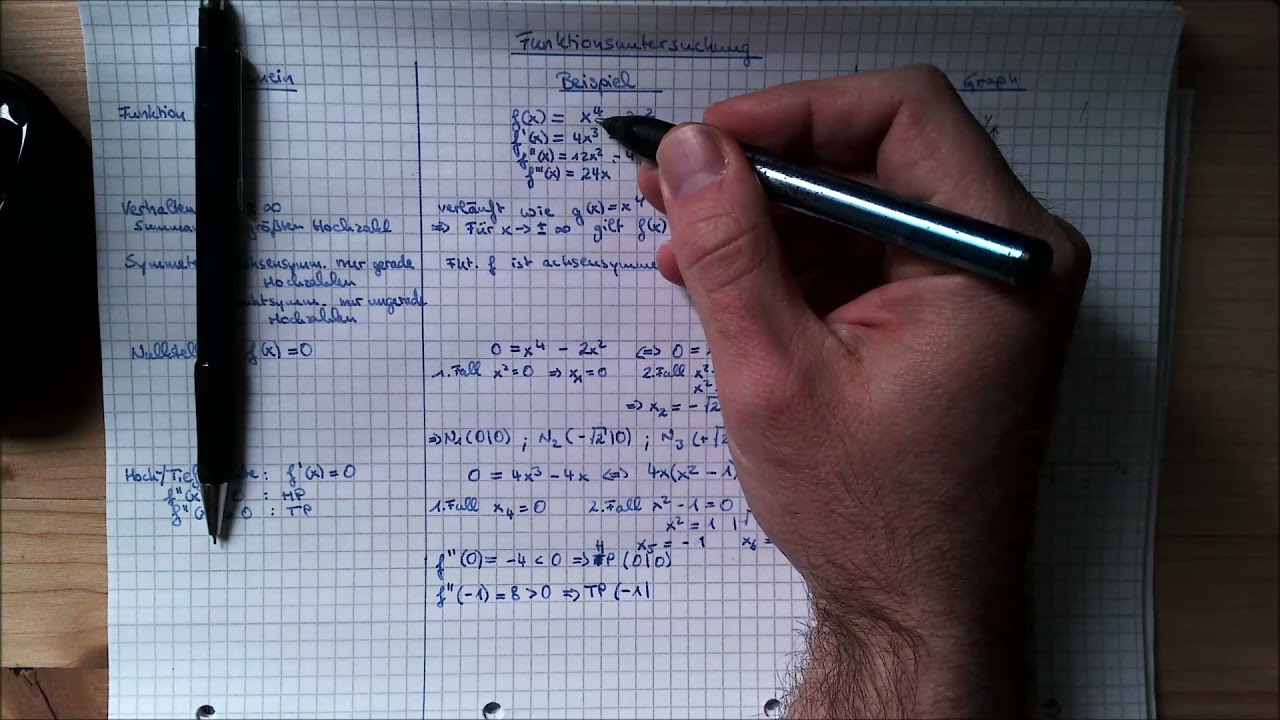 Funktionsuntersuchung
Beispiel
Graph
Funktion
f(x) = x⁴
f'(x) = 4x³
f''(x) = 12x² - 4
f'''(x) = 24x
Verhalten ∞
größten Hochzahl
verläuft wie g(x) = x⁴
=> Für x -> ± ∞ gilt f(x)
nur gerade
Hochzahlen
nur ungerade
Hochzahlen
Fkt. f ist achsensymme
f(x) = 0
0 = x⁴ - 2x² <=> 0 =
1. Fall x² = 0 => x₁ = 0 2. Fall x²
x²
=> x₂ = -√2
=> N₁(0|0) ; N₂(-√2|0) ; N₃(+√2
Hoch-/Tief : f'(x) = 0
f''(x 0 : HP
f''(x > 0 : TP
0 = 4x³ - 4x <=> 4x(x² - 1)
1. Fall x₄ = 0 2. Fall x² - 1 = 0
x² = 1 | √
x₅ = -1 x₆ =
f''(0) = -4 < 0 => HP (0|0)
f''(-1) = 8 > 0 => TP (-1|